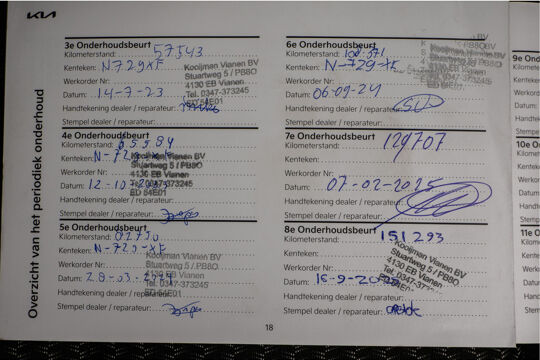 KIA
Overzicht van het periodiek onderhoud
3e Onderhoudsbeurt
Kilometerstand: 57543
Kenteken: N729XF
Werkorder Nr:
Datum: 14-7-23
Handtekening dealer / reparateur:
Stempel dealer / reparateur:
Kooijman Vianen BV
Stuartweg 5 / PB8O
4130 EB Vianen
Tel. 0347-373245
ED 54E01
4e Onderhoudsbeurt
Kilometerstand:
Kenteken:
Werkorder Nr:
Datum: 12-10-
Handtekening dealer / reparateur:
Stempel dealer / reparateur:
Kooijman Vianen BV
Stuartweg 5 / PB8O
4130 EB Vianen
Tel. 0347-373245
ED 54E01
5e Onderhoudsbeurt
Kilometerstand:
Kenteken: N-729-XF
Werkorder Nr:
Datum: 28-03-
Handtekening dealer / reparateur:
Stempel dealer / reparateur:
Kooijman Vianen BV
Stuartweg 5 / PB8O
4130 EB Vianen
Tel. 0347-373245
ED 54E01
6e Onderhoudsbeurt
Kilometerstand:
Kenteken: N-729-XF
Werkorder Nr:
Datum: 06-09-24
Handtekening dealer / reparateur:
Stempel dealer / reparateur:
7e Onderhoudsbeurt
Kilometerstand: 129707
Kenteken:
Werkorder Nr:
Datum: 07-02-2025
Handtekening dealer / reparateur:
Stempel dealer / reparateur:
8e Onderhoudsbeurt
Kilometerstand: 151293
Kenteken:
Werkorder Nr:
Datum:
Handtekening dealer / reparateur:
Stempel dealer / reparateur:
Kooijman Vianen BV
Stuartweg 5 / PB8O
4130 EB Vianen
Tel. 0347-373245
18
9e On
Kilome
Kentek
Werko
Datum
Handt
Stemp
10e O
Kilome
Kente
Werk
Datu
Hand
Stem
11e O